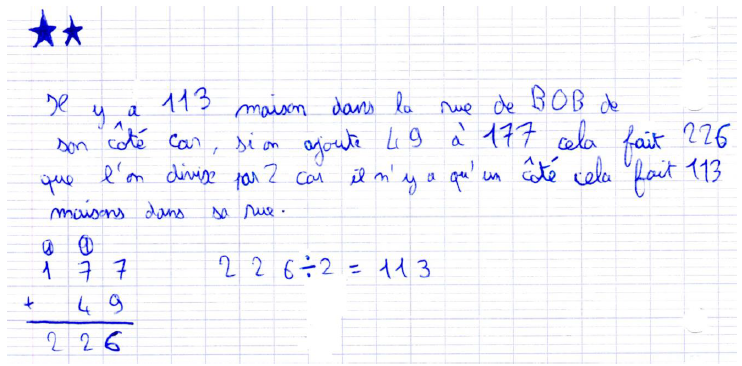 Il y a 113 maison dans la rue de BOB de
son côté car, si on ajoute 49 à 177 cela fait 226
que l'on divise par 2 car il n'y a qu'un côté cela fait 113
maisons dans sa rue.
1 1
1 7 7 2 2 6 ÷ 2 = 113
+ 4 9
2 2 6